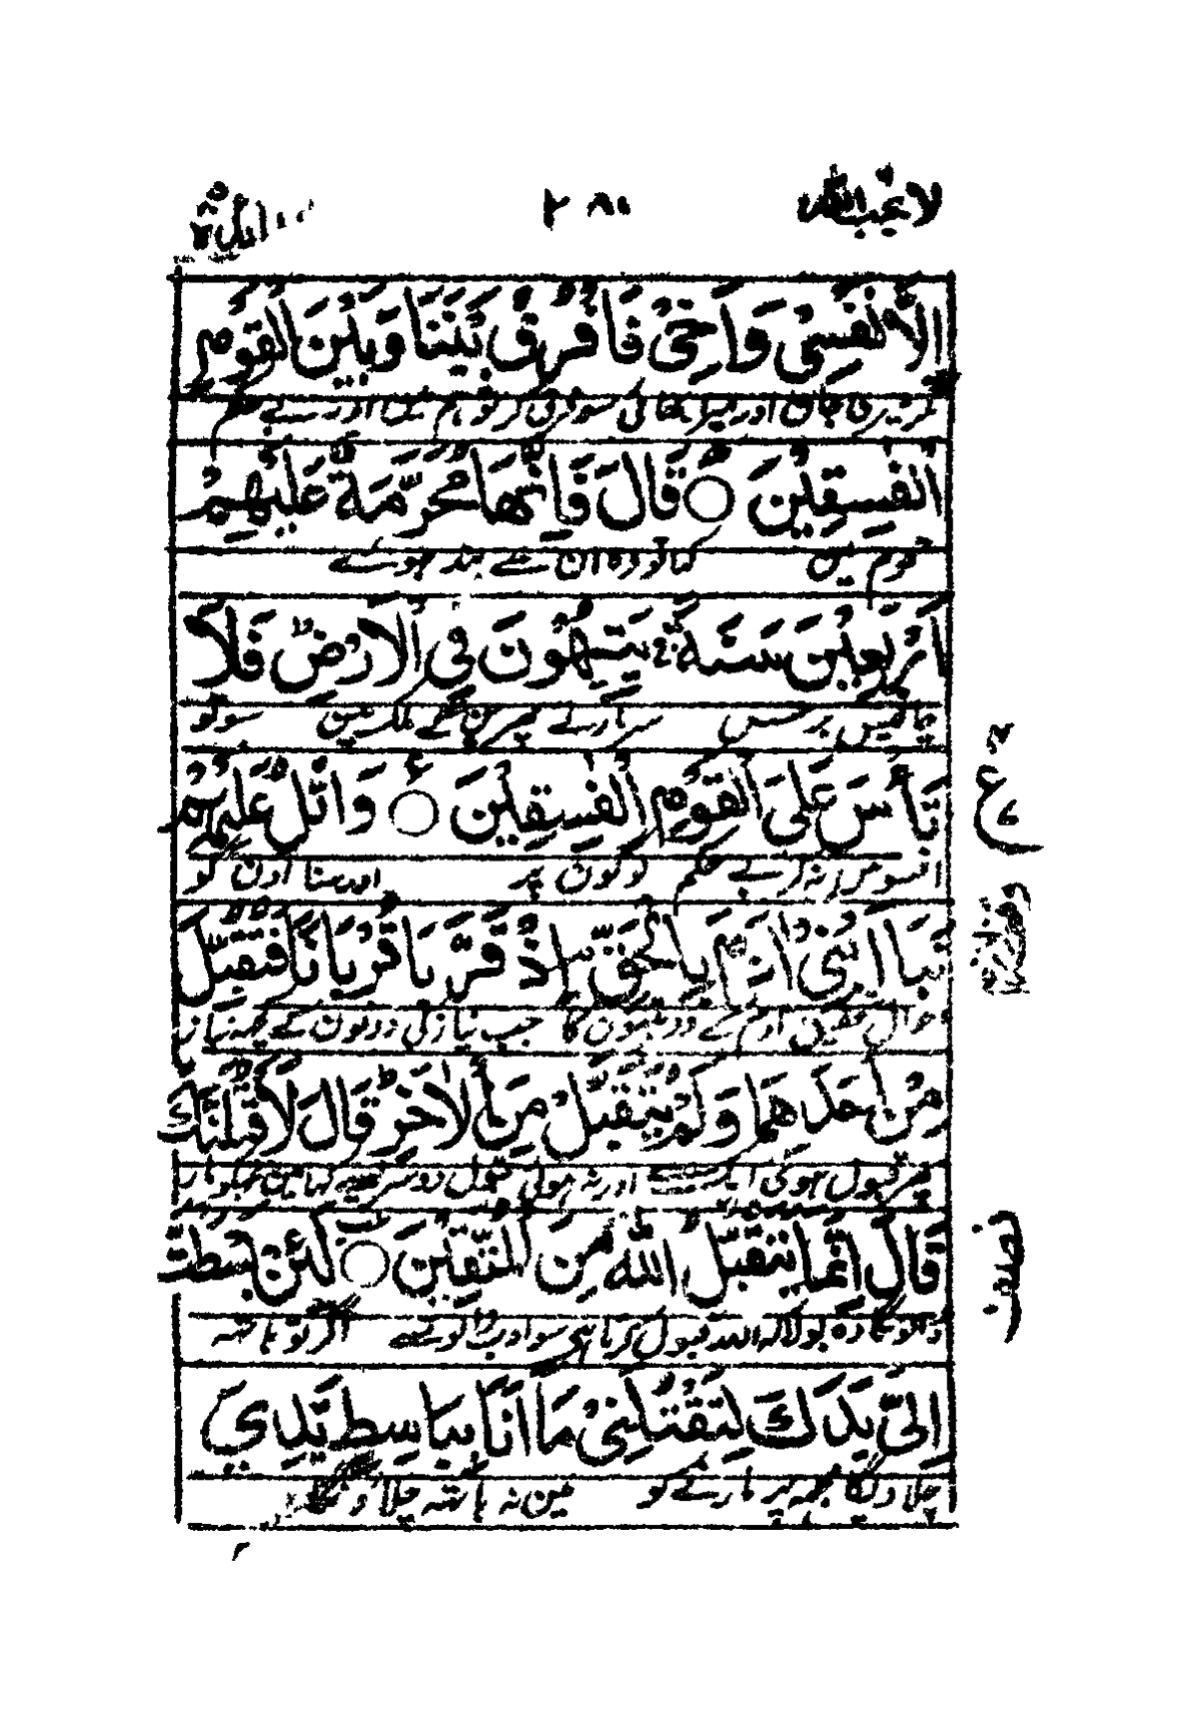 لا يحب الله ٢٨٠ المائدة ٥
اِلَّا نَفْسِىْ وَاَخِىْ فَافْرُقْ بَيْنَنَا وَبَيْنَ الْقَوْمِ
مگر میری جان اور میرا بھائی سو فرق کر تو ہم میں اور بے حکم
الْفٰسِقِيْنَ ○ قَالَ فَاِنَّهَا مُحَرَّمَةٌ عَلَيْهِمْ
قوم میں کہا تو وہ ان سے بند ہوئے
اَرْبَعِيْنَ سَنَةً ۚ يَتِيْهُوْنَ فِى الْاَرْضِ ؕ فَلَا
چالیس برس سر مارتے پھرینگے ملک میں سو تو
تَاْسَ عَلَى الْقَوْمِ الْفٰسِقِيْنَ ○ وَاتْلُ عَلَيْهِمْ
افسوس نہ کر بے حکم لوگوں پر اور سنا اون کو
نَبَاَ ابْنَىْ اٰدَمَ بِالْحَقِّ اِذْ قَرَّبَا قُرْبَانًا فَتُقُبِّلَ
احوال تحقیق آدم کے دو بیٹوں کا جب نیاز کی دونوں نے کچھ نیاز
مِنْ اَحَدِهِمَا وَلَمْ يُتَقَبَّلْ مِنَ الْاٰخَرِ ؕ قَالَ لَاَقْتُلَنَّكَ
پھر قبول ہوئی ایک سے اور نہ ہوئی قبول دوسرے سے کہا میں تجکو
قَالَ اِنَّمَا يَتَقَبَّلُ اللّٰهُ مِنَ الْمُتَّقِيْنَ ○ لَئِنْ بَسَطْتَّ
وہ بولا کہ اللہ قبول کرتا ہی سو ادب والوں سے اگر تو ہاتھ
اِلَىَّ يَدَكَ لِتَقْتُلَنِىْ مَا اَنَا بِبَاسِطٍ يَّدِىَ
چلاویگا مجھ پر مارنے کو میں نہ ہاتھ چلاؤنگا
ع
نصف